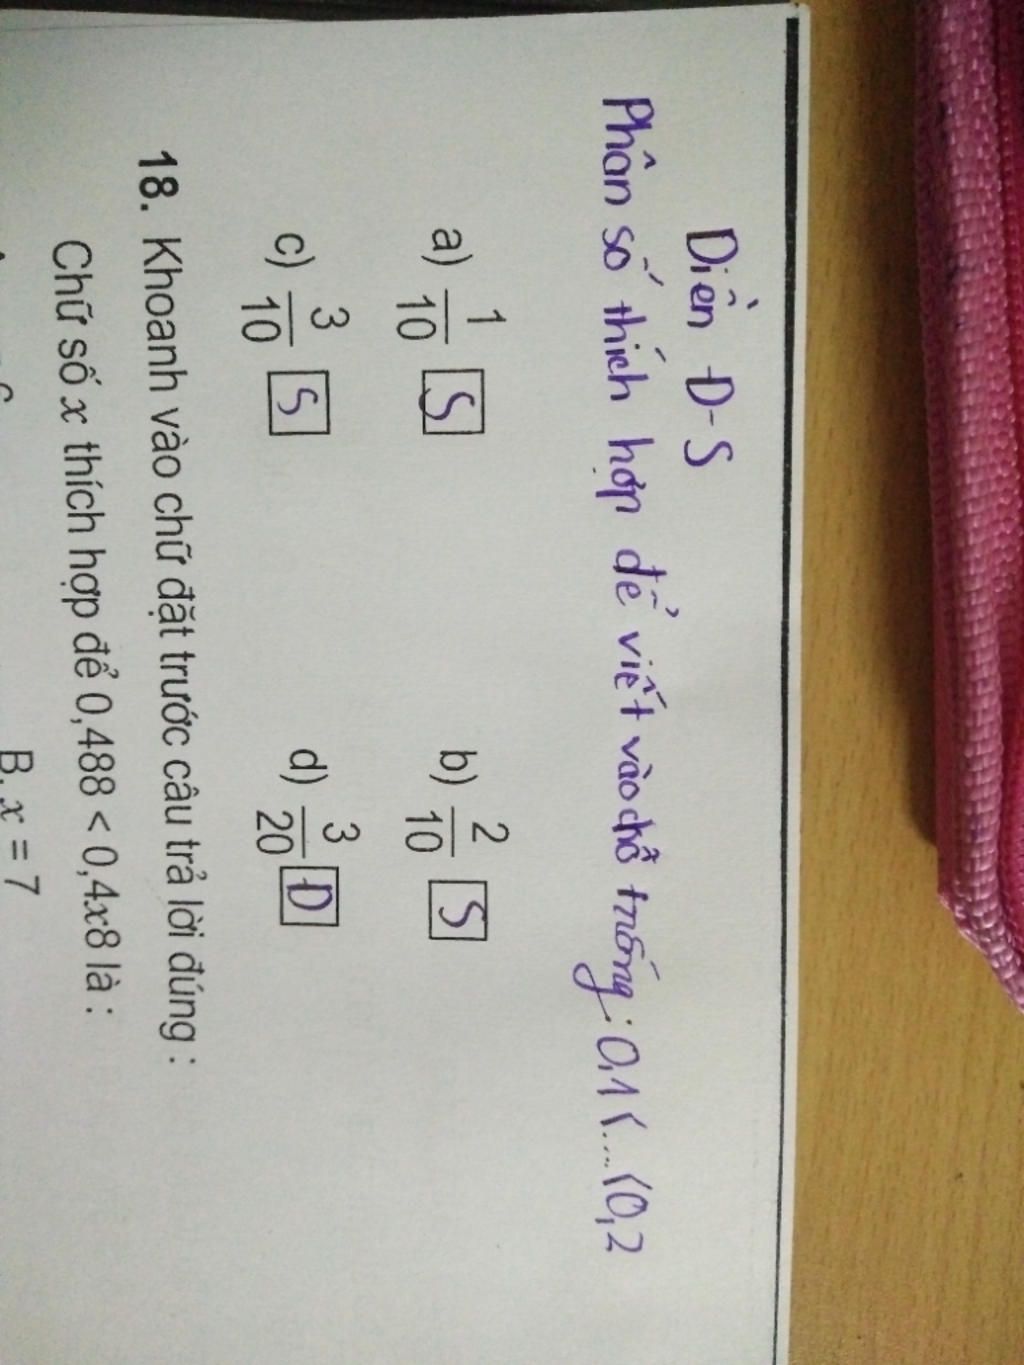 Điền Đ-S
Phân số thích hợp để viết vào chỗ trống: 0,1 <....< 0,2
a) 1/10 S b) 2/10 S
c) 3/10 S d) 3/20 Đ
18. Khoanh vào chữ đặt trước câu trả lời đúng :
Chữ số x thích hợp để 0,488 < 0,4x8 là :
B. x = 7